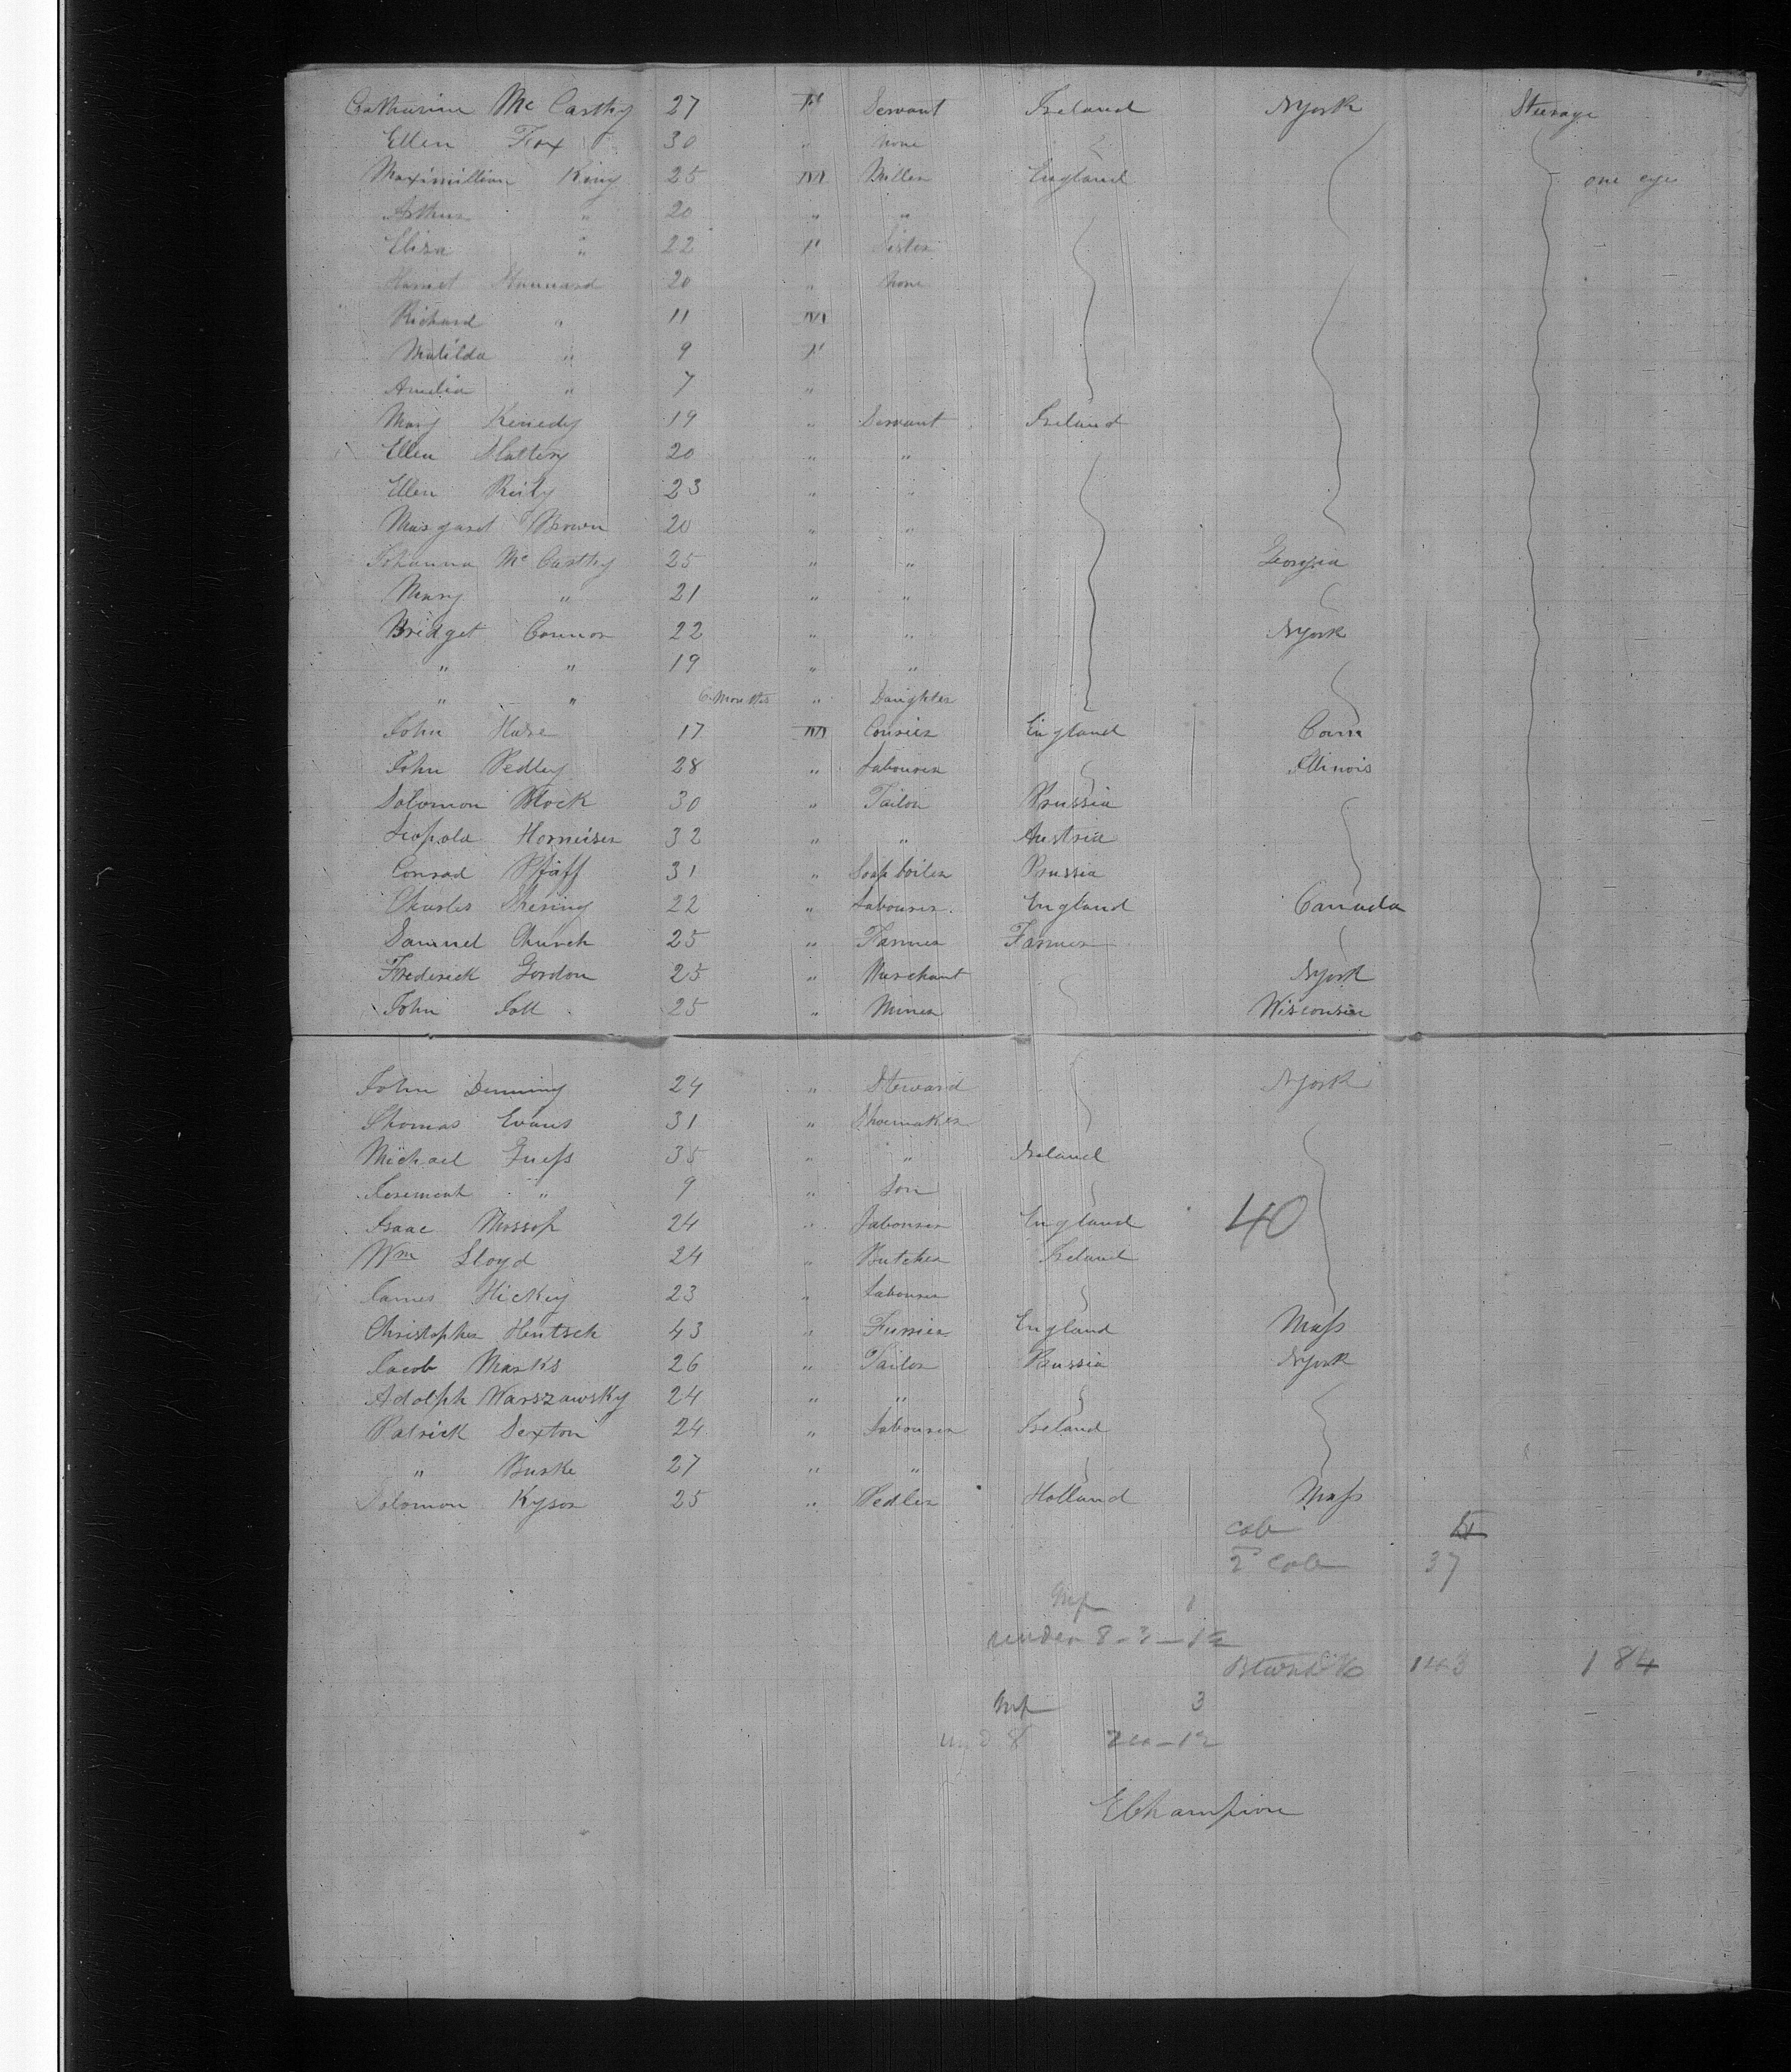 Catharine Mc Carthy 27 F Servant Ireland NYork Steerage
Ellen Fox 30 " none
Maximillian King 25 M Miller England one eye
Arthur " 20 " "
Eliza " 22 F Sister
Harriet Hannard 20 " none
Richard " 11 M
Matilda " 9 F
Amelia " 7 "
Mary Kenedy 19 " Servant Ireland
Ellen Slattery 20 " "
Ellen Reily 23 " "
Margaret Brown 20 " "
Johanna Mc Carthy 25 " " Georgia
Mary " 21 " "
Bridget Connor 22 " " NYork
" " 19 " "
" " 6 Months " Daughter
John Hare 17 M Courier England Conn
John Pedley 28 " Labourer Illinois
Solomon Block 30 " Tailor Prussia
Leopold Horneiser 32 " " Austria
Conrad Pfaff 31 " Soap boiler Prussia
Charles 22 " Labourer England Canada
Samuel Church 25 " Farmer Farmer
Frederick Gordon 25 " Merchant NYork
John 25 " Miner Wisconsin
John Denning 24 " Steward NYork
Thomas Evans 31 " Shoemaker
Michael 35 " " Ireland
" 9 " Son
Isaac Mossop 24 " Labourer England 40
Wm Lloyd 24 " Butcher Ireland
James Hickey 23 " Labourer
Christopher Hentsch 43 " Furrier England Mass
Jacob Marks 26 " Tailor Prussia NYork
Adolph Warszawsky 24 " "
Patrick Sexton 24 " Labourer Ireland
" Burke 27 " "
Solomon Kysor 25 " Pedler Holland Mass
Cab 4
2 Cab 37
Inf 1
under 8-3-1
143 184
Inf 3
und 8
EChampion